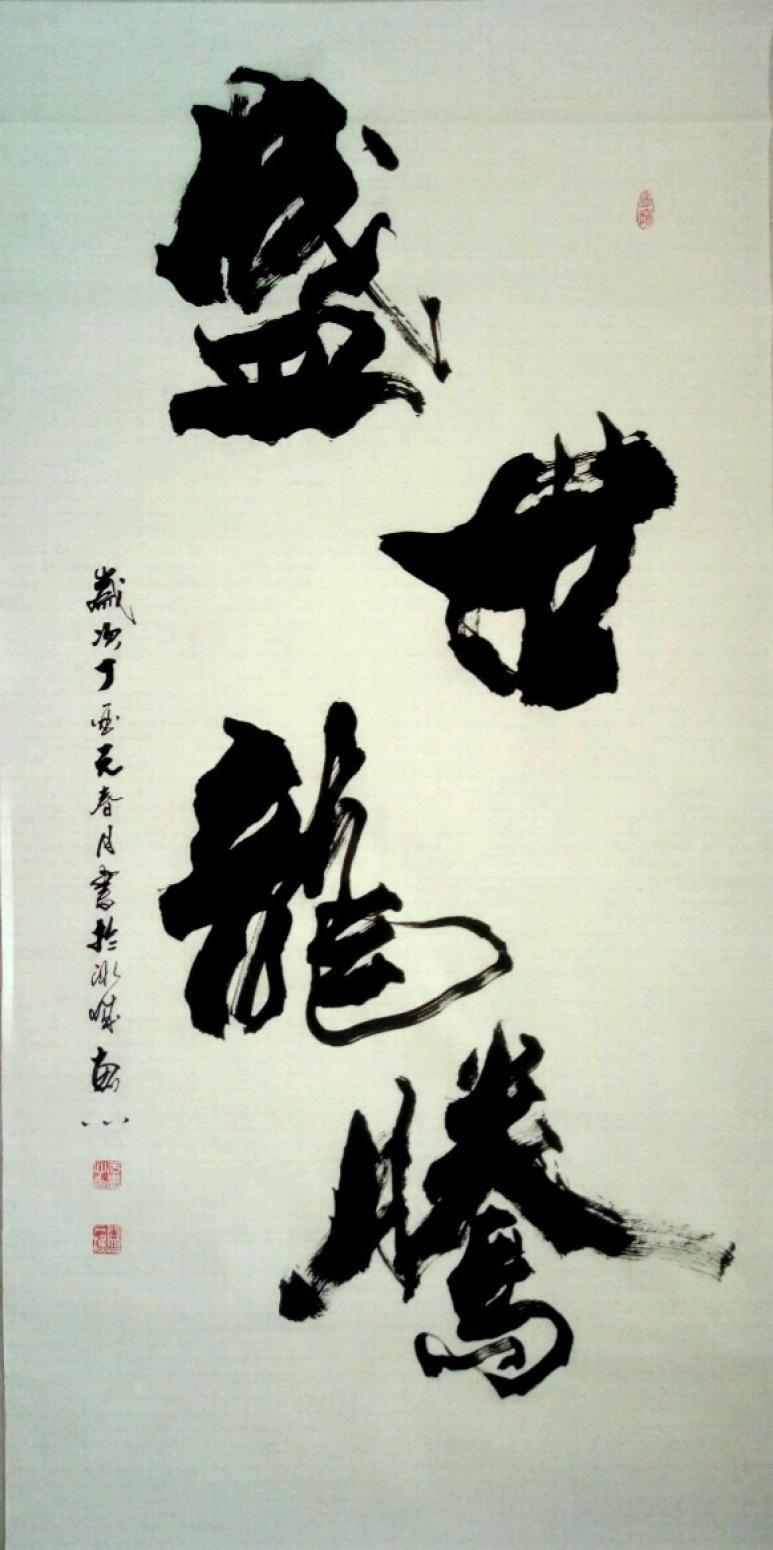 盛世龍騰
歲次丁酉元春月書於冰城